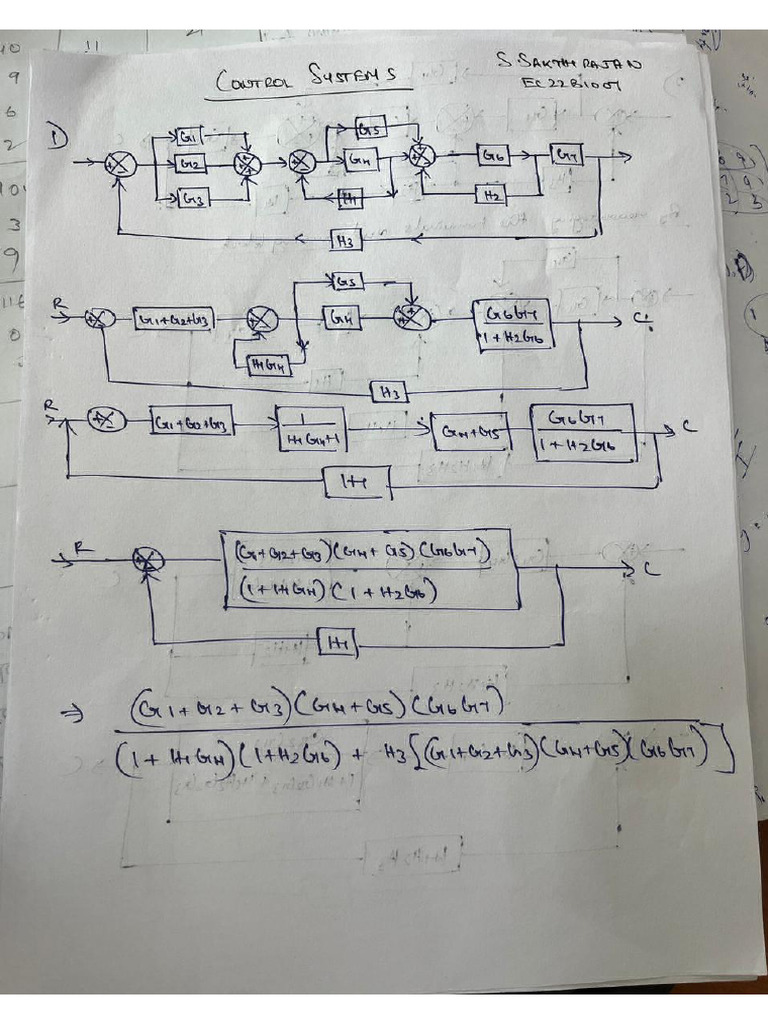 CONTROL SYSTEMS
S. SAKTHI RAJAN
EC22B1001
1)
G1 G5
G2 G4 G6 G7
G3 H1 H2
H3
G5
R G1+G2+G3 G4 G6G7 C
1+H2G6
H1G4
H3
R G1+G2+G3 1 G4+G5 G6G7 C
H1G4+1 1+H2G6
H1
R (G1+G2+G3)(G4+G5)(G6G7) C
(1+H1G4)(1+H2G6)
H1
⇒ (G1+G2+G3)(G4+G5)(G6G7)
(1+H1G4)(1+H2G6) + H3[(G1+G2+G3)(G4+G5)(G6G7)]